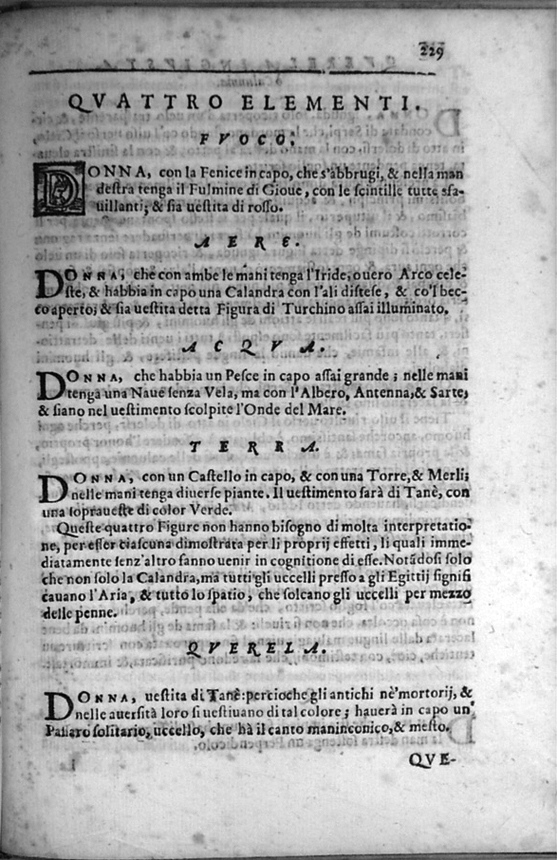 229
QVATTRO ELEMENTI.
FVOCO.
DONNA, con la Fenice in capo, che s'abbrugi, & nella man
destra tenga il Fulmine di Gioue, con le scintille tutte sfa-
uillanti; & sia uestita di rosso.
AERE.
DONNA, che con ambe le mani tenga l'Iride, ouero Arco cele-
ste, & habbia in capo una Calandra con l'ali distese, & co'l bec-
co aperto; & sia uestita detta Figura di Turchino assai illuminato.
ACQVA.
DONNA, che habbia un Pesce in capo assai grande; nelle mani
tenga una Naue senza Vela, ma con l'Albero, Antenna, & Sarte,
& siano nel uestimento scolpite l'Onde del Mare.
TERRA.
DONNA, con un Castello in capo, & con una Torre, & Merli;
nelle mani tenga diuerse piante. Il uestimento sarà di Tanè, con
una sopraueste di color Verde.
Queste quattro Figure non hanno bisogno di molta interpretatio-
ne, per esser ciascuna dimostrata per li proprij effetti, li quali imme-
diatamente senz'altro fanno uenir in cognitione di esse. Notãdosi solo
che non solo la Calandra, ma tutti gli uccelli presso a gli Egittij signifi
cauano l'Aria, & tutto lo spatio, che solcano gli uccelli per mezzo
delle penne.
QVERELA.
DONNA, uestita di Tanè: percioche gli antichi ne' mortorij, &
nelle auersità loro si uestiuano di tal colore; hauerà in capo un'
Passaro solitario, uccello, che hà il canto maninconico, & mesto.
QVE-